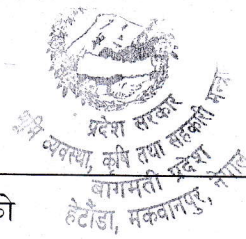 प्रदेश सरकार
भूमि व्यवस्था, कृषि तथा सहकारी मन्त्रा
बागमती प्रदेश
हेटौंडा, मकवानपुर, नेपाल
ो